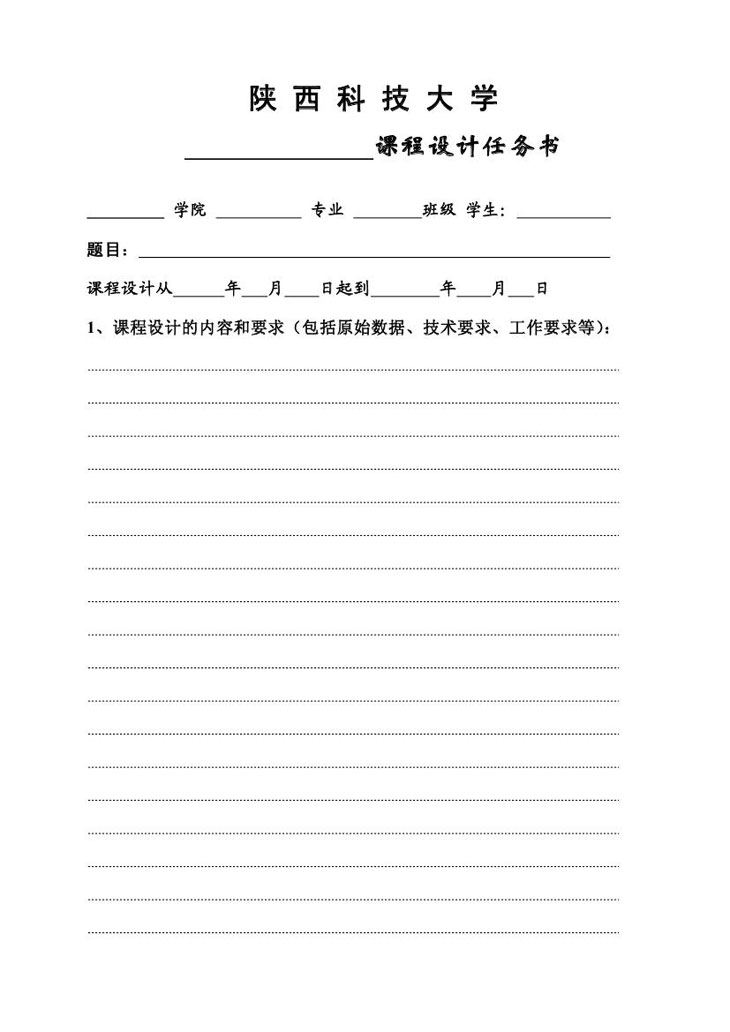 陕 西 科 技 大 学
______________课程设计任务书
________ 学院 __________ 专业 _______班级 学生： __________
题目：______________________________________________
课程设计从______年___月____日起到________年____月___日
1、课程设计的内容和要求（包括原始数据、技术要求、工作要求等）：